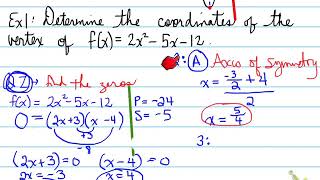 Ex1: Determine the coordinates of the
vertex of f(x) = 2x² - 5x - 12.
Q2) Find the zeros
f(x) = 2x² - 5x - 12
0 = (2x+3)(x-4)
+3
-8
(2x+3)=0 (x-4)=0
2x = -3 x = 4
P = -24
S = -5
2: (A) Axis of Symmetry
x = (-3/2 + 4)/2
x = 5/4
3: